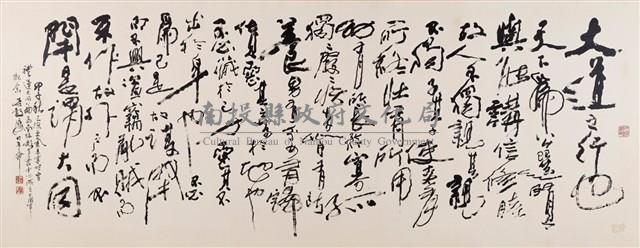 大道之行也
天下為公選賢
與能講信修睦
故人不獨親其親
不獨子其子使老有
所終壯有所用
幼有所長矜寡孤
獨廢疾者皆有所
養男有分女有歸
貨惡其棄於地也
不必藏於己力惡其不
出於身也不必
為己是故謀閉
而不興盜竊亂賊而
不作故外戶而不
閉是謂大同
南投縣政府文化局
Cultural Bureau of Nantou County Government